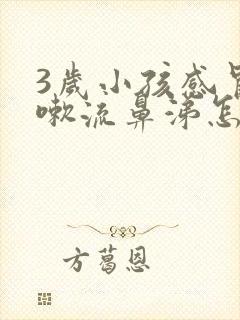 3歲小孩感冒
嗽流鼻涕怎
方葛恩